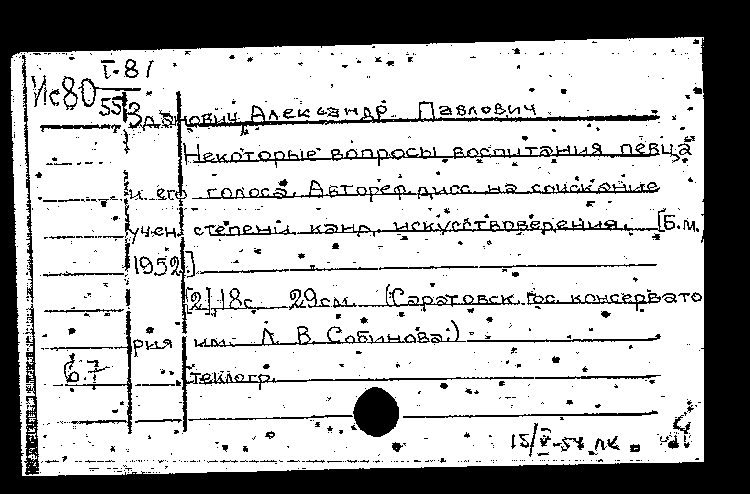 Ис80 I-81
55
Зданович Александр Павлович
Некоторые вопросы воспитания певца
и его голоса. Автореф. дисс. на соискание
учен. степени канд. искусствоведения. [Б.м.,
1952.]
[2],18с. 29см. (Саратовск. гос. консервато
рия им. Л. В. Собинова.)
6.7 Стеклогр.
15/V-54 лк